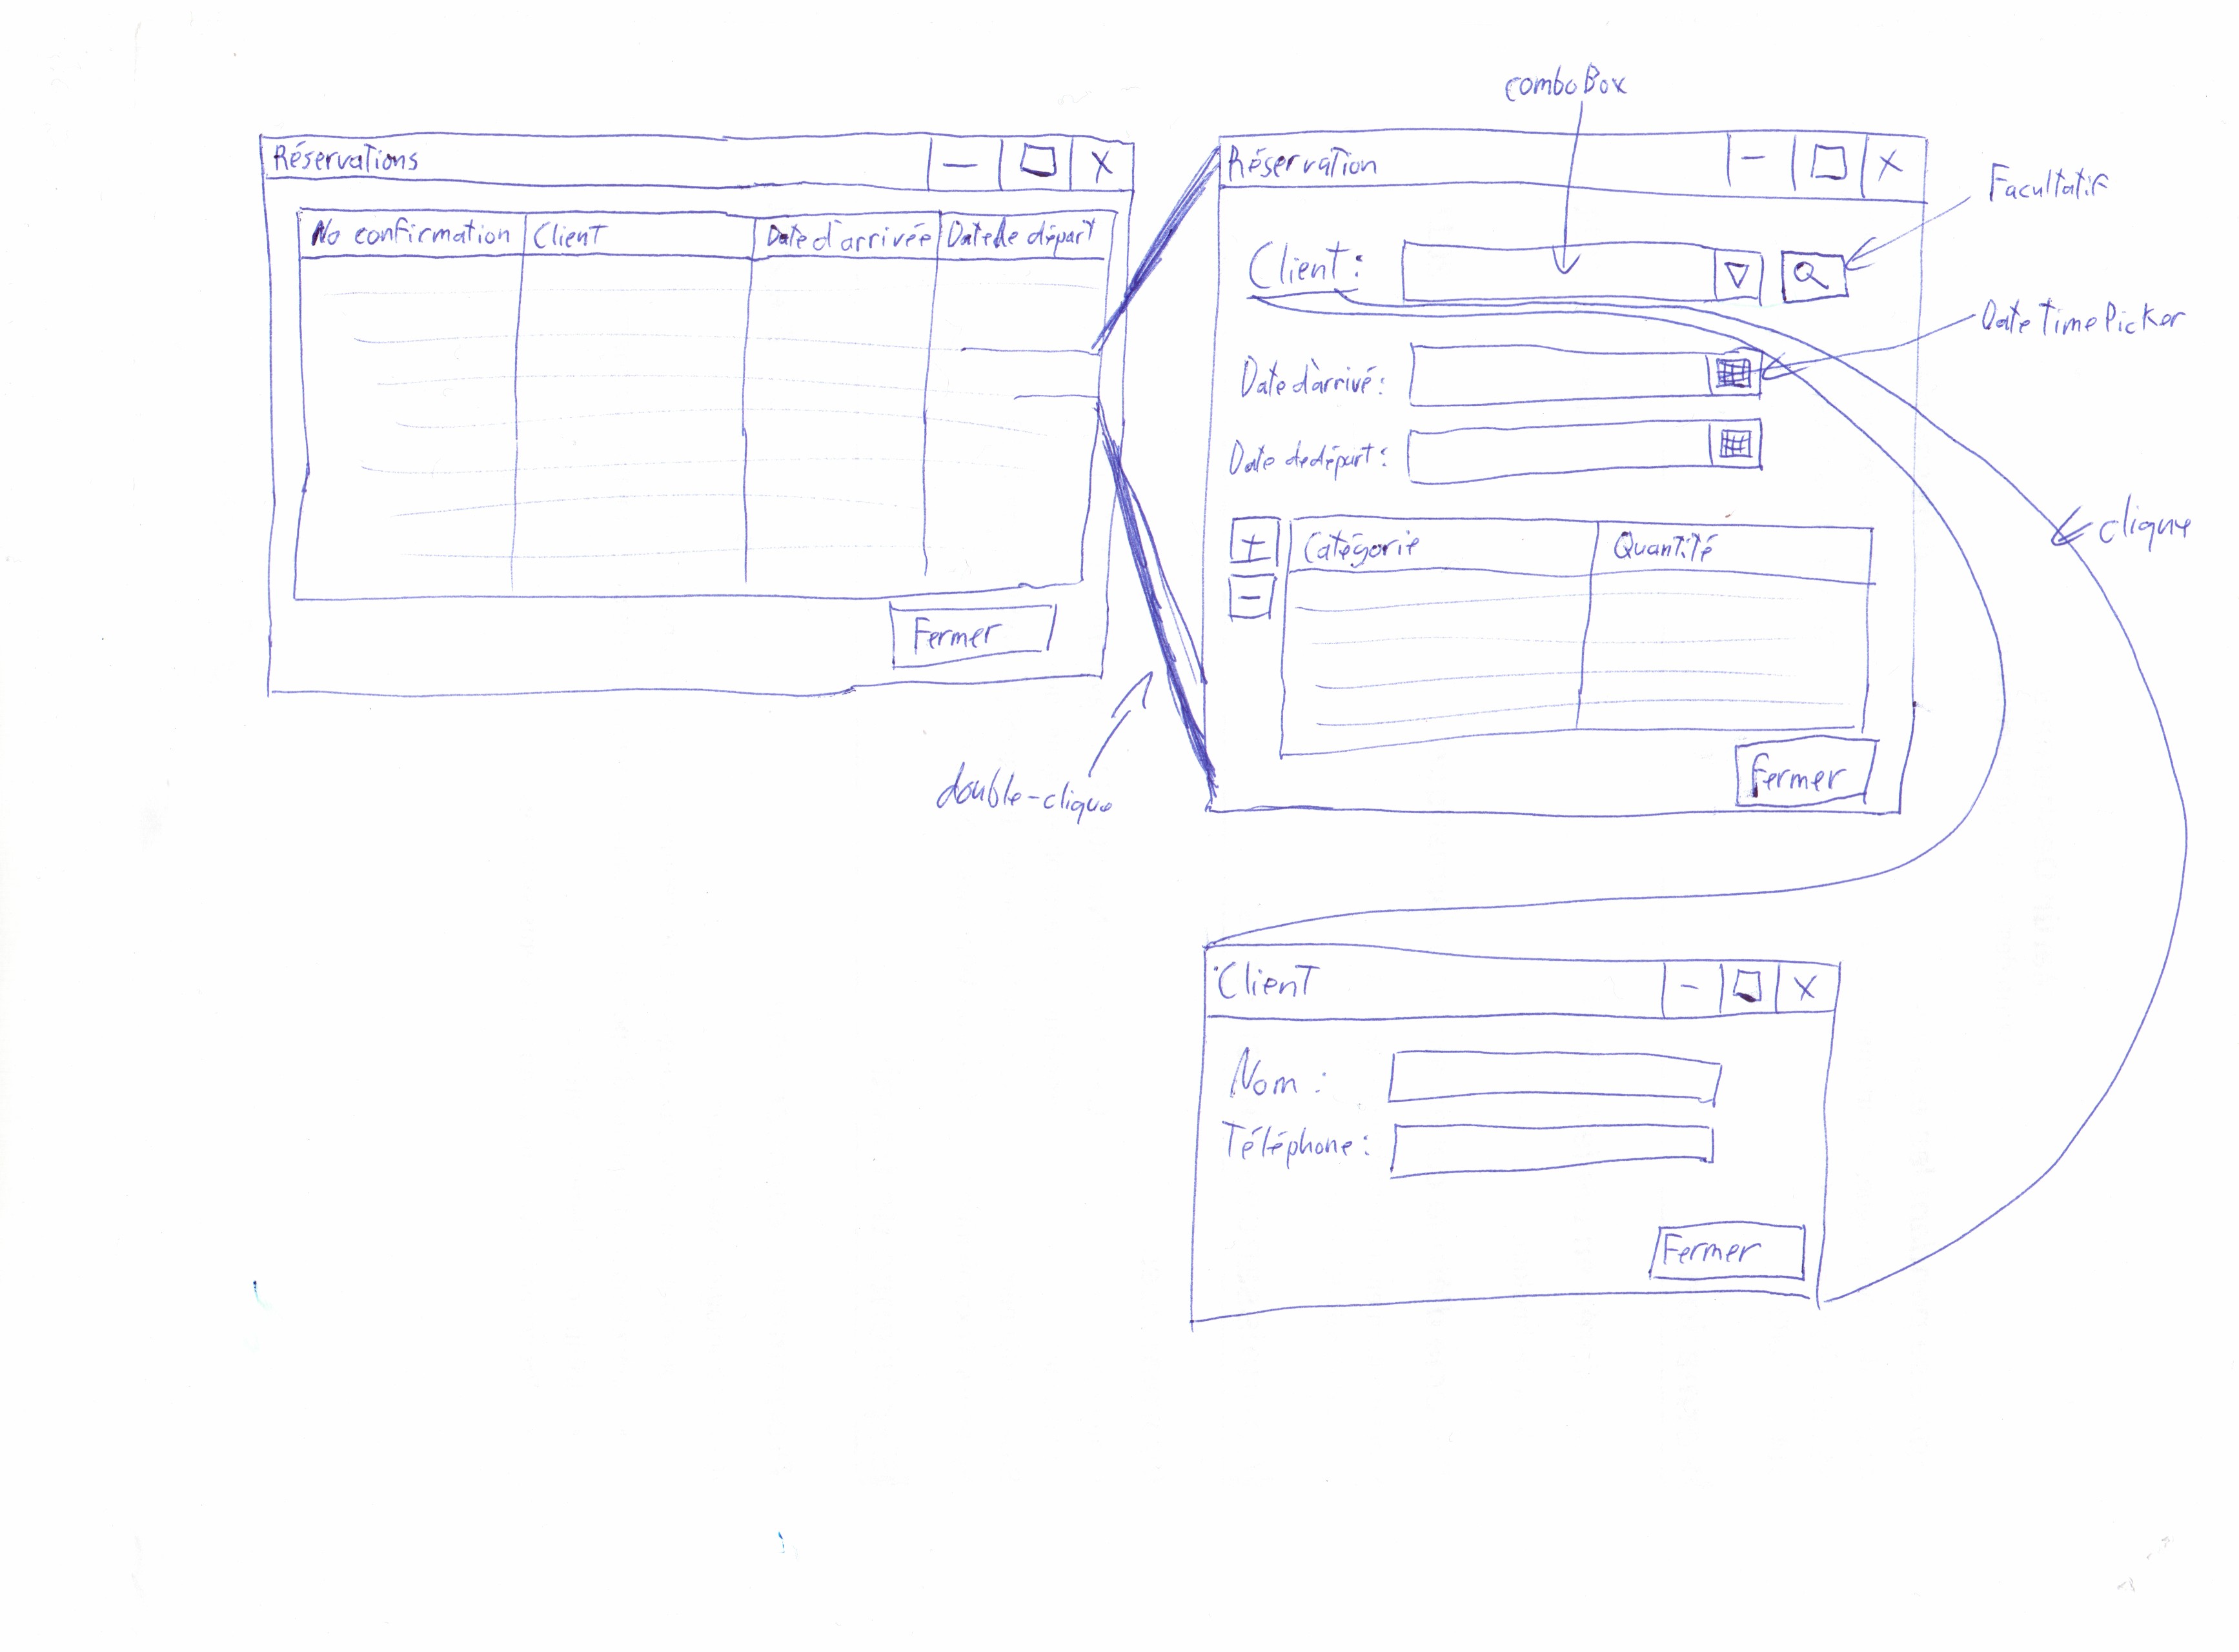 comboBox
Réservations — X
No confirmation Client Date d'arrivée Date de départ
Fermer
double-clique
Réservation - X
Facultatif
Client :
DateTimePicker
Date d'arrivé :
Date de départ :
clique
+ Catégorie Quantité
-
Fermer
Client - X
Nom :
Téléphone :
Fermer